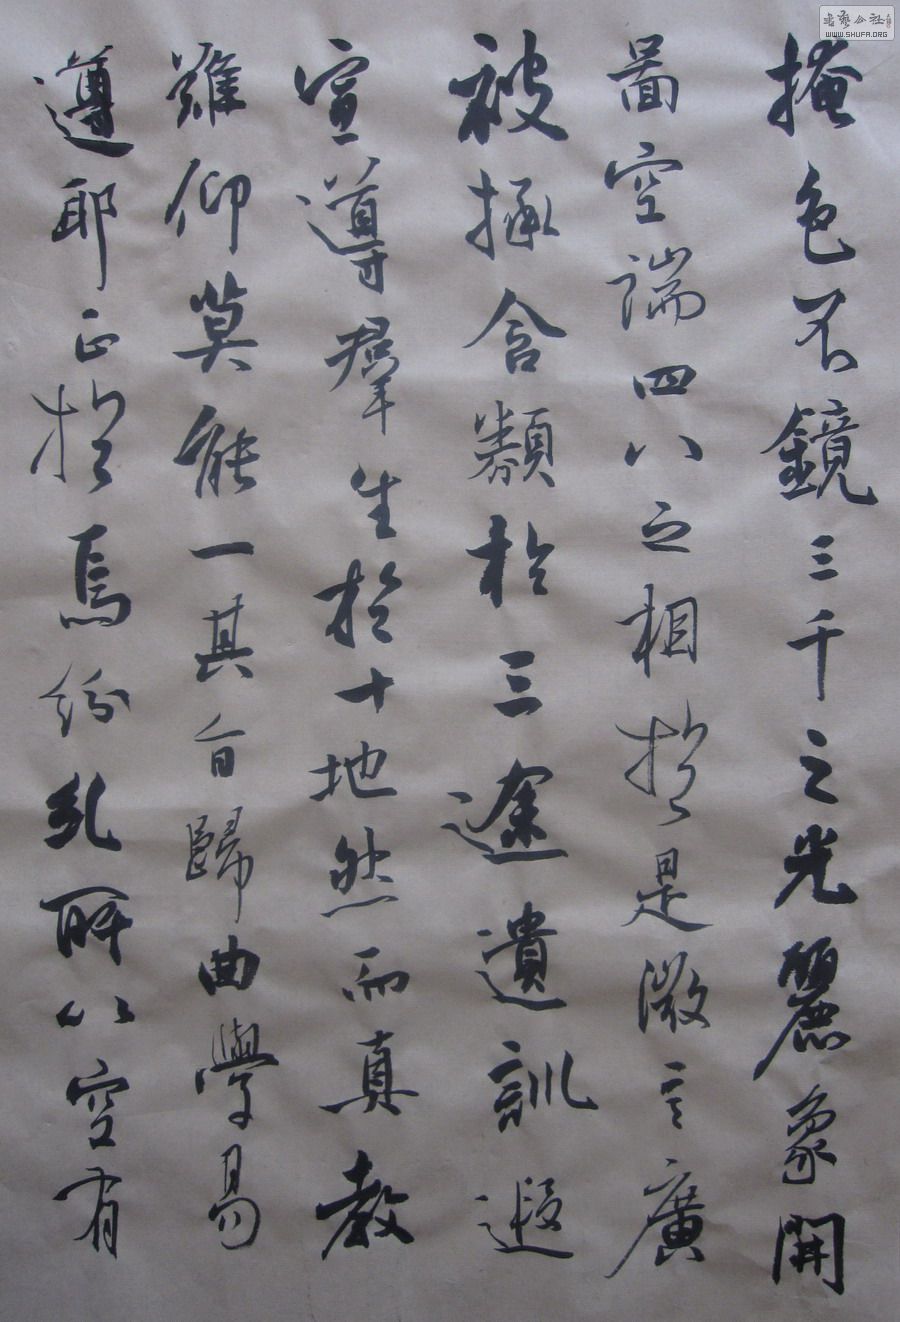 掩色不鏡三千之光麗象開
圖空端四八之相於是微言廣
被拯含類於三途遺訓遐
宣導羣生於十地然而真教
難仰莫能一其旨歸曲學易
遵耶正於焉紛糺所以空有
書藝公社
WWW.SHUFA.ORG